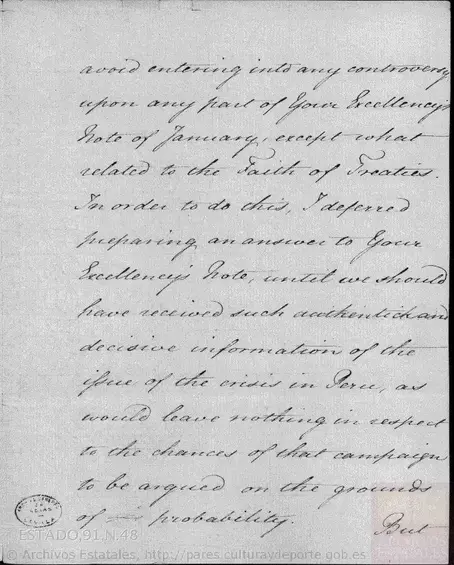 avoid entering into any controversy
upon any part of Your Excellency's
Note of January, except what
related to the Faith of Treaties.
In order to do this, I deferred
preparing an answer to Your
Excellency's Note, until we should
have received such authentick and
decisive information of the
issue of the crisis in Peru, as
would leave nothing in respect
to the chances of that campaign
to be argued on the grounds
of probability.
But
ESTADO,91,N.48
© Archivos Estatales, http://pares.culturaydeporte.gob.es